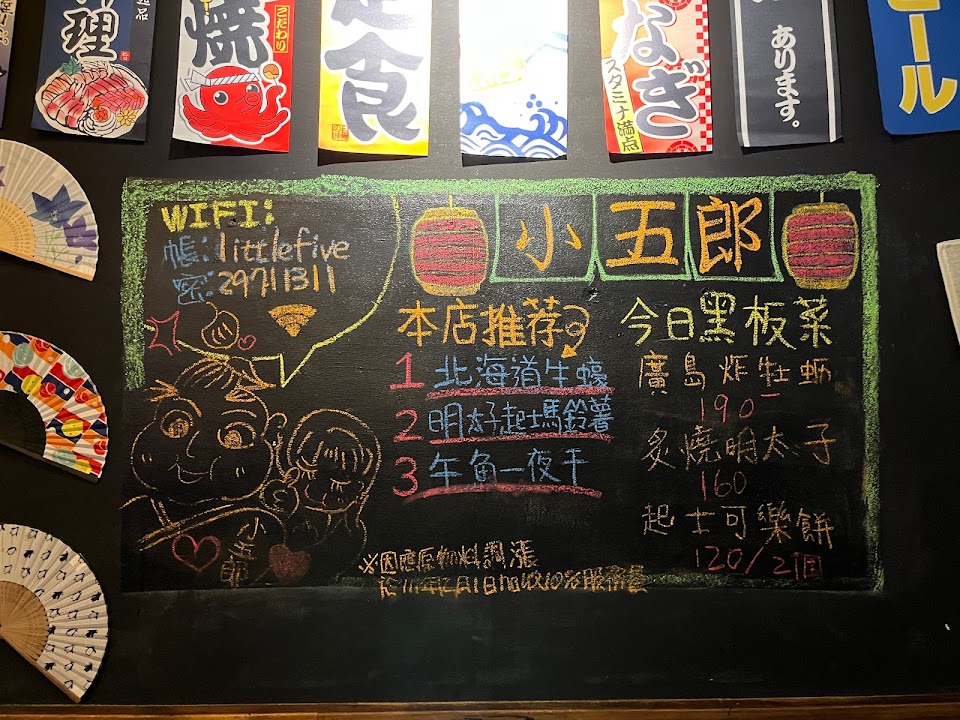 理
焼
こだわり
定食
なぎ
スタミナ満点
あります。
ビール
WIFI:
帳:littlefive
密:29711311
小五郎
本店推荐
1 北海道生蠔
2 明太子起士馬鈴薯
3 午魚一夜干
今日黑板菜
廣島炸牡蠣
190-
炙燒明太子
160
起士可樂餅
120/2個
小五郎
※因應原物料調漲